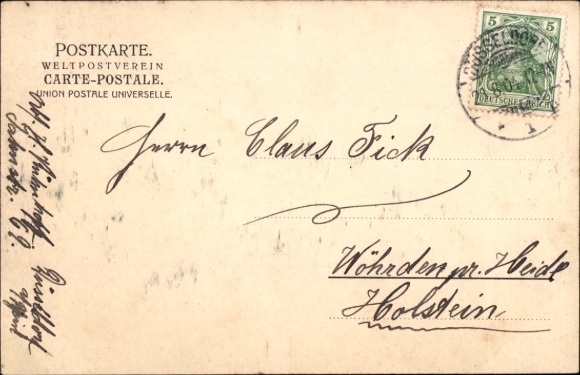 POSTKARTE.
WELTPOSTVEREIN
CARTE-POSTALE.
UNION POSTALE UNIVERSELLE.
5 5
DEUTSCHES REICH
DÜSSELDORF
Herrn Claus Fick
Wöhrden pr. Heide
Holstein
69.
Düsseldorf